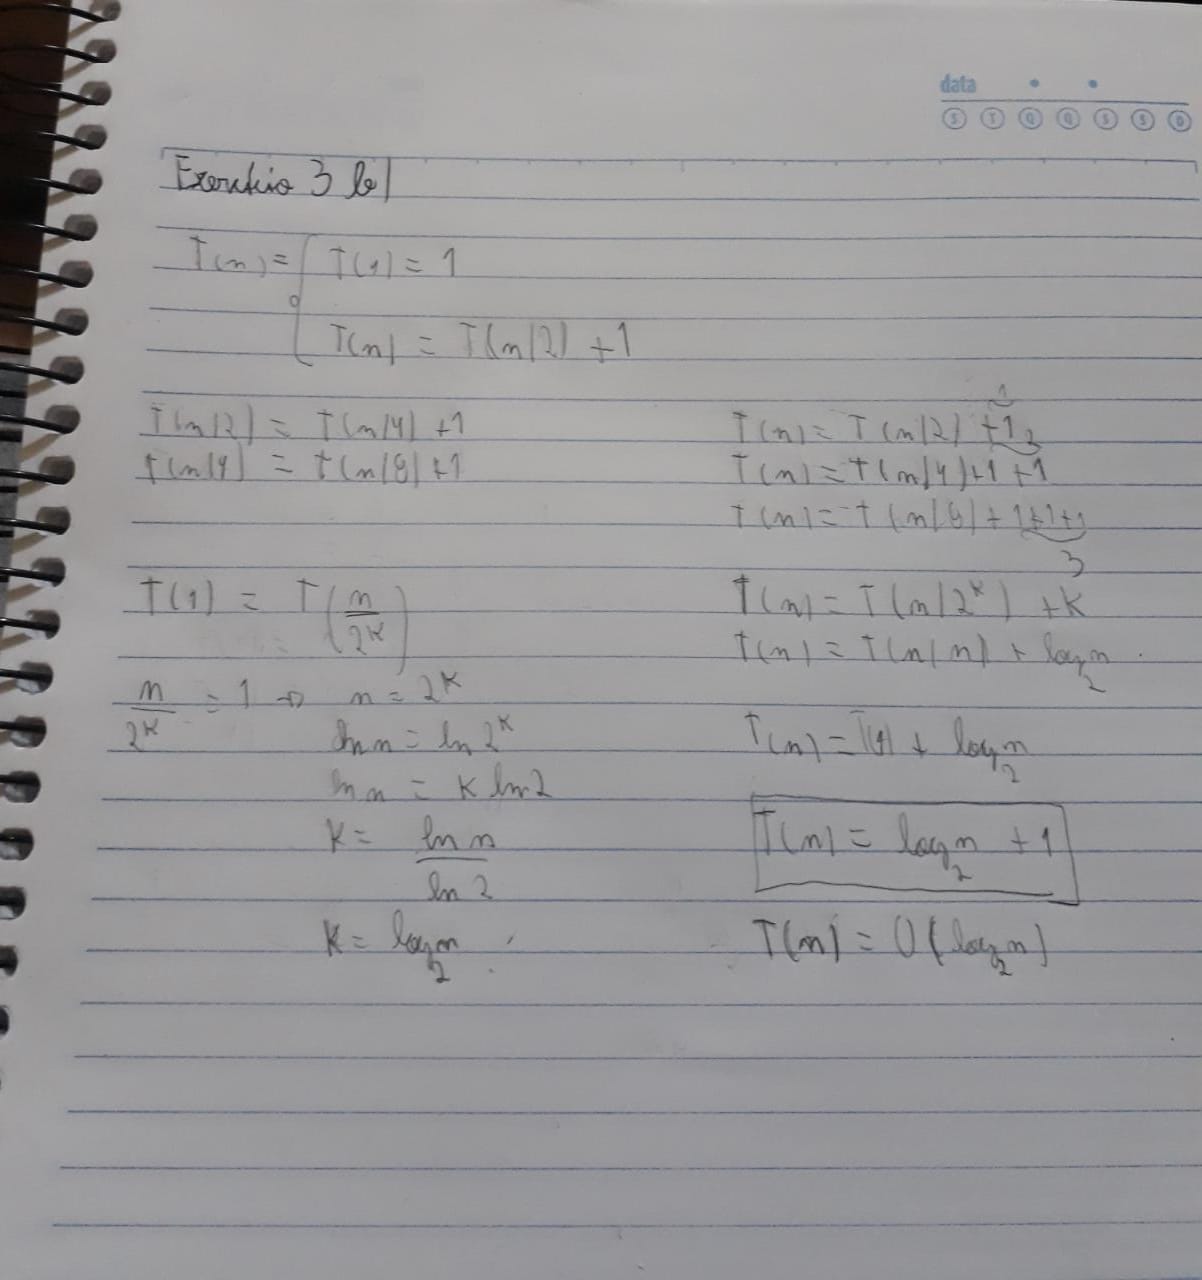 data
S T Q Q S S D
Exercício 3 b)
T(n) = { T(1) = 1
T(n) = T(n/2) + 1
T(n/2) = T(n/4) + 1
T(n/4) = T(n/8) + 1
T(1) = T(n/2^k)
n/2^k = 1 → n = 2^k
ln n = ln 2^k
ln n = k ln 2
k = ln n / ln 2
k = log₂ n
1
T(n) = T(n/2) + 1
2
T(n) = T(n/4) + 1 + 1
T(n) = T(n/8) + 1+1+1
3
T(n) = T(n/2^k) + k
T(n) = T(n/n) + log₂ n
T(n) = T(1) + log₂ n
T(n) = log₂ n + 1
T(n) = O(log₂ n)